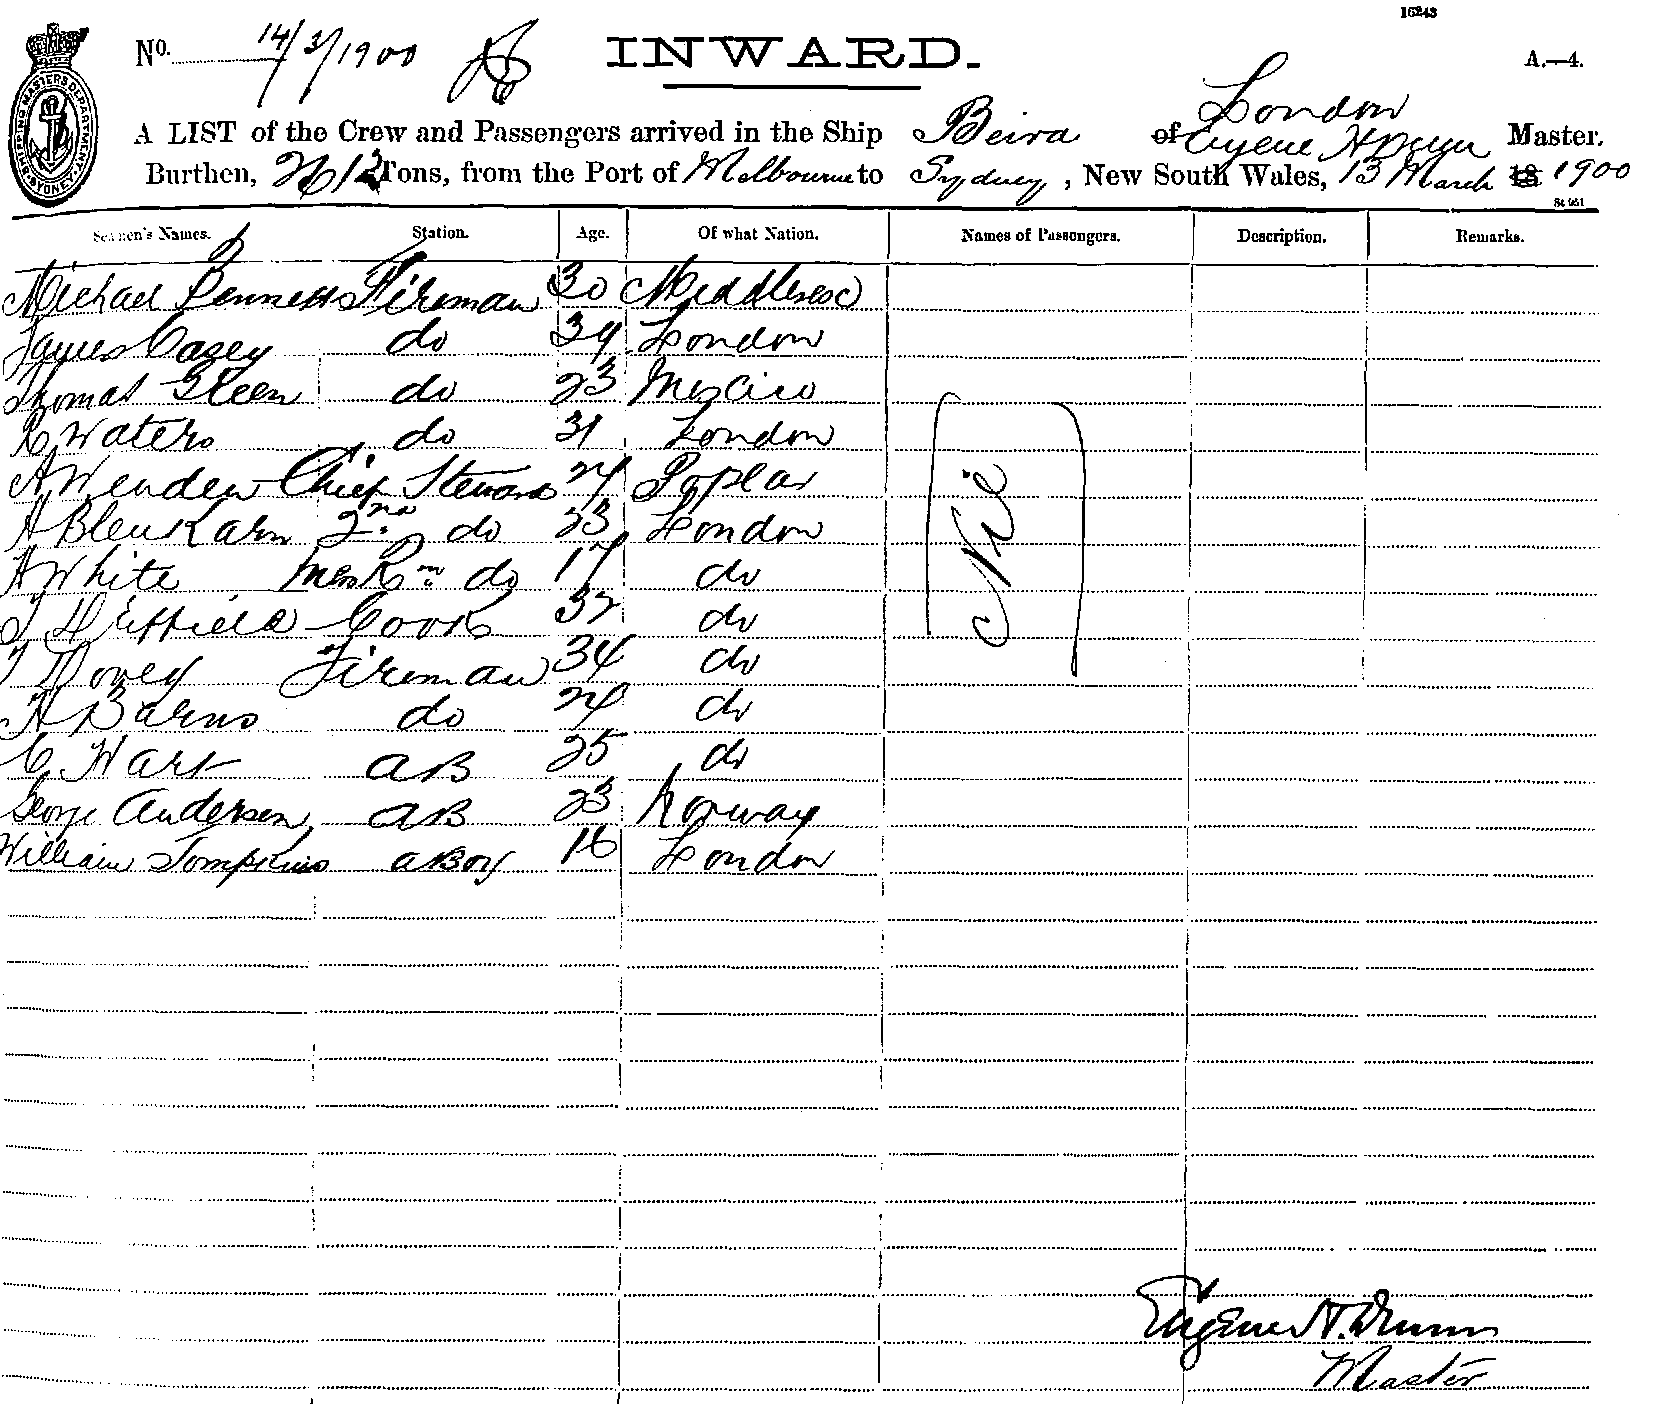 15243
No. 14/3/1900 INWARD. A.—4.
London
A LIST of the Crew and Passengers arrived in the Ship Beira of Eugene H Dunn Master.
Burthen, Tons, from the Port of Melbourne to Sydney, New South Wales, 13 March 18 1900
SHIPPING MASTERS DEPARTMENT SYDNEY
St 951
Seamen's Names. Station. Age. Of what Nation. Names of Passengers. Description. Remarks.
Michael Fireman 30 Middlesex
James Casey do 34 London
Thomas Green do 23 Mexico
R Waters do 31 London
A Wenden Chief Steward 24 Poplar
A Blenkarn 2nd do 23 London
A White MessRm do 17 do
Nil
T Cook 37 do
T Dovey Fireman 34 do
H Barns do 24 do
C. Hart AB 25 do
George Andersen AB 23 Norway
William Tompkins a Boy 16 London
Eugene H. Dunn
Master